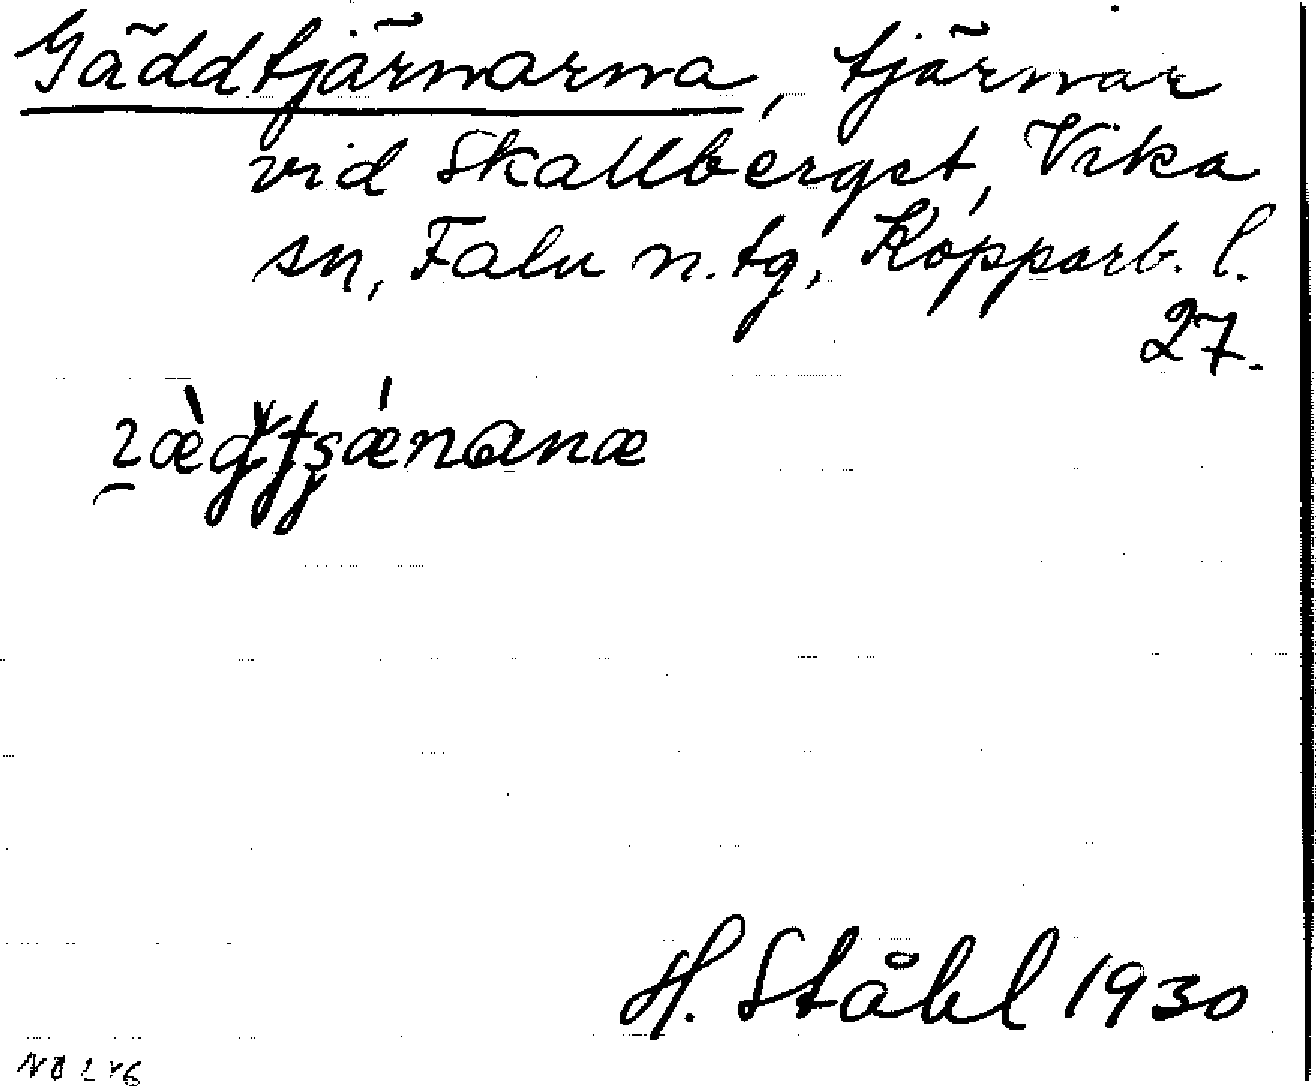 Gäddtjärnarna, tjärnar
vid Skallberget, Vika
sn, Falu n. tg, Kopparb. l.
27.
H. Ståhl 1930